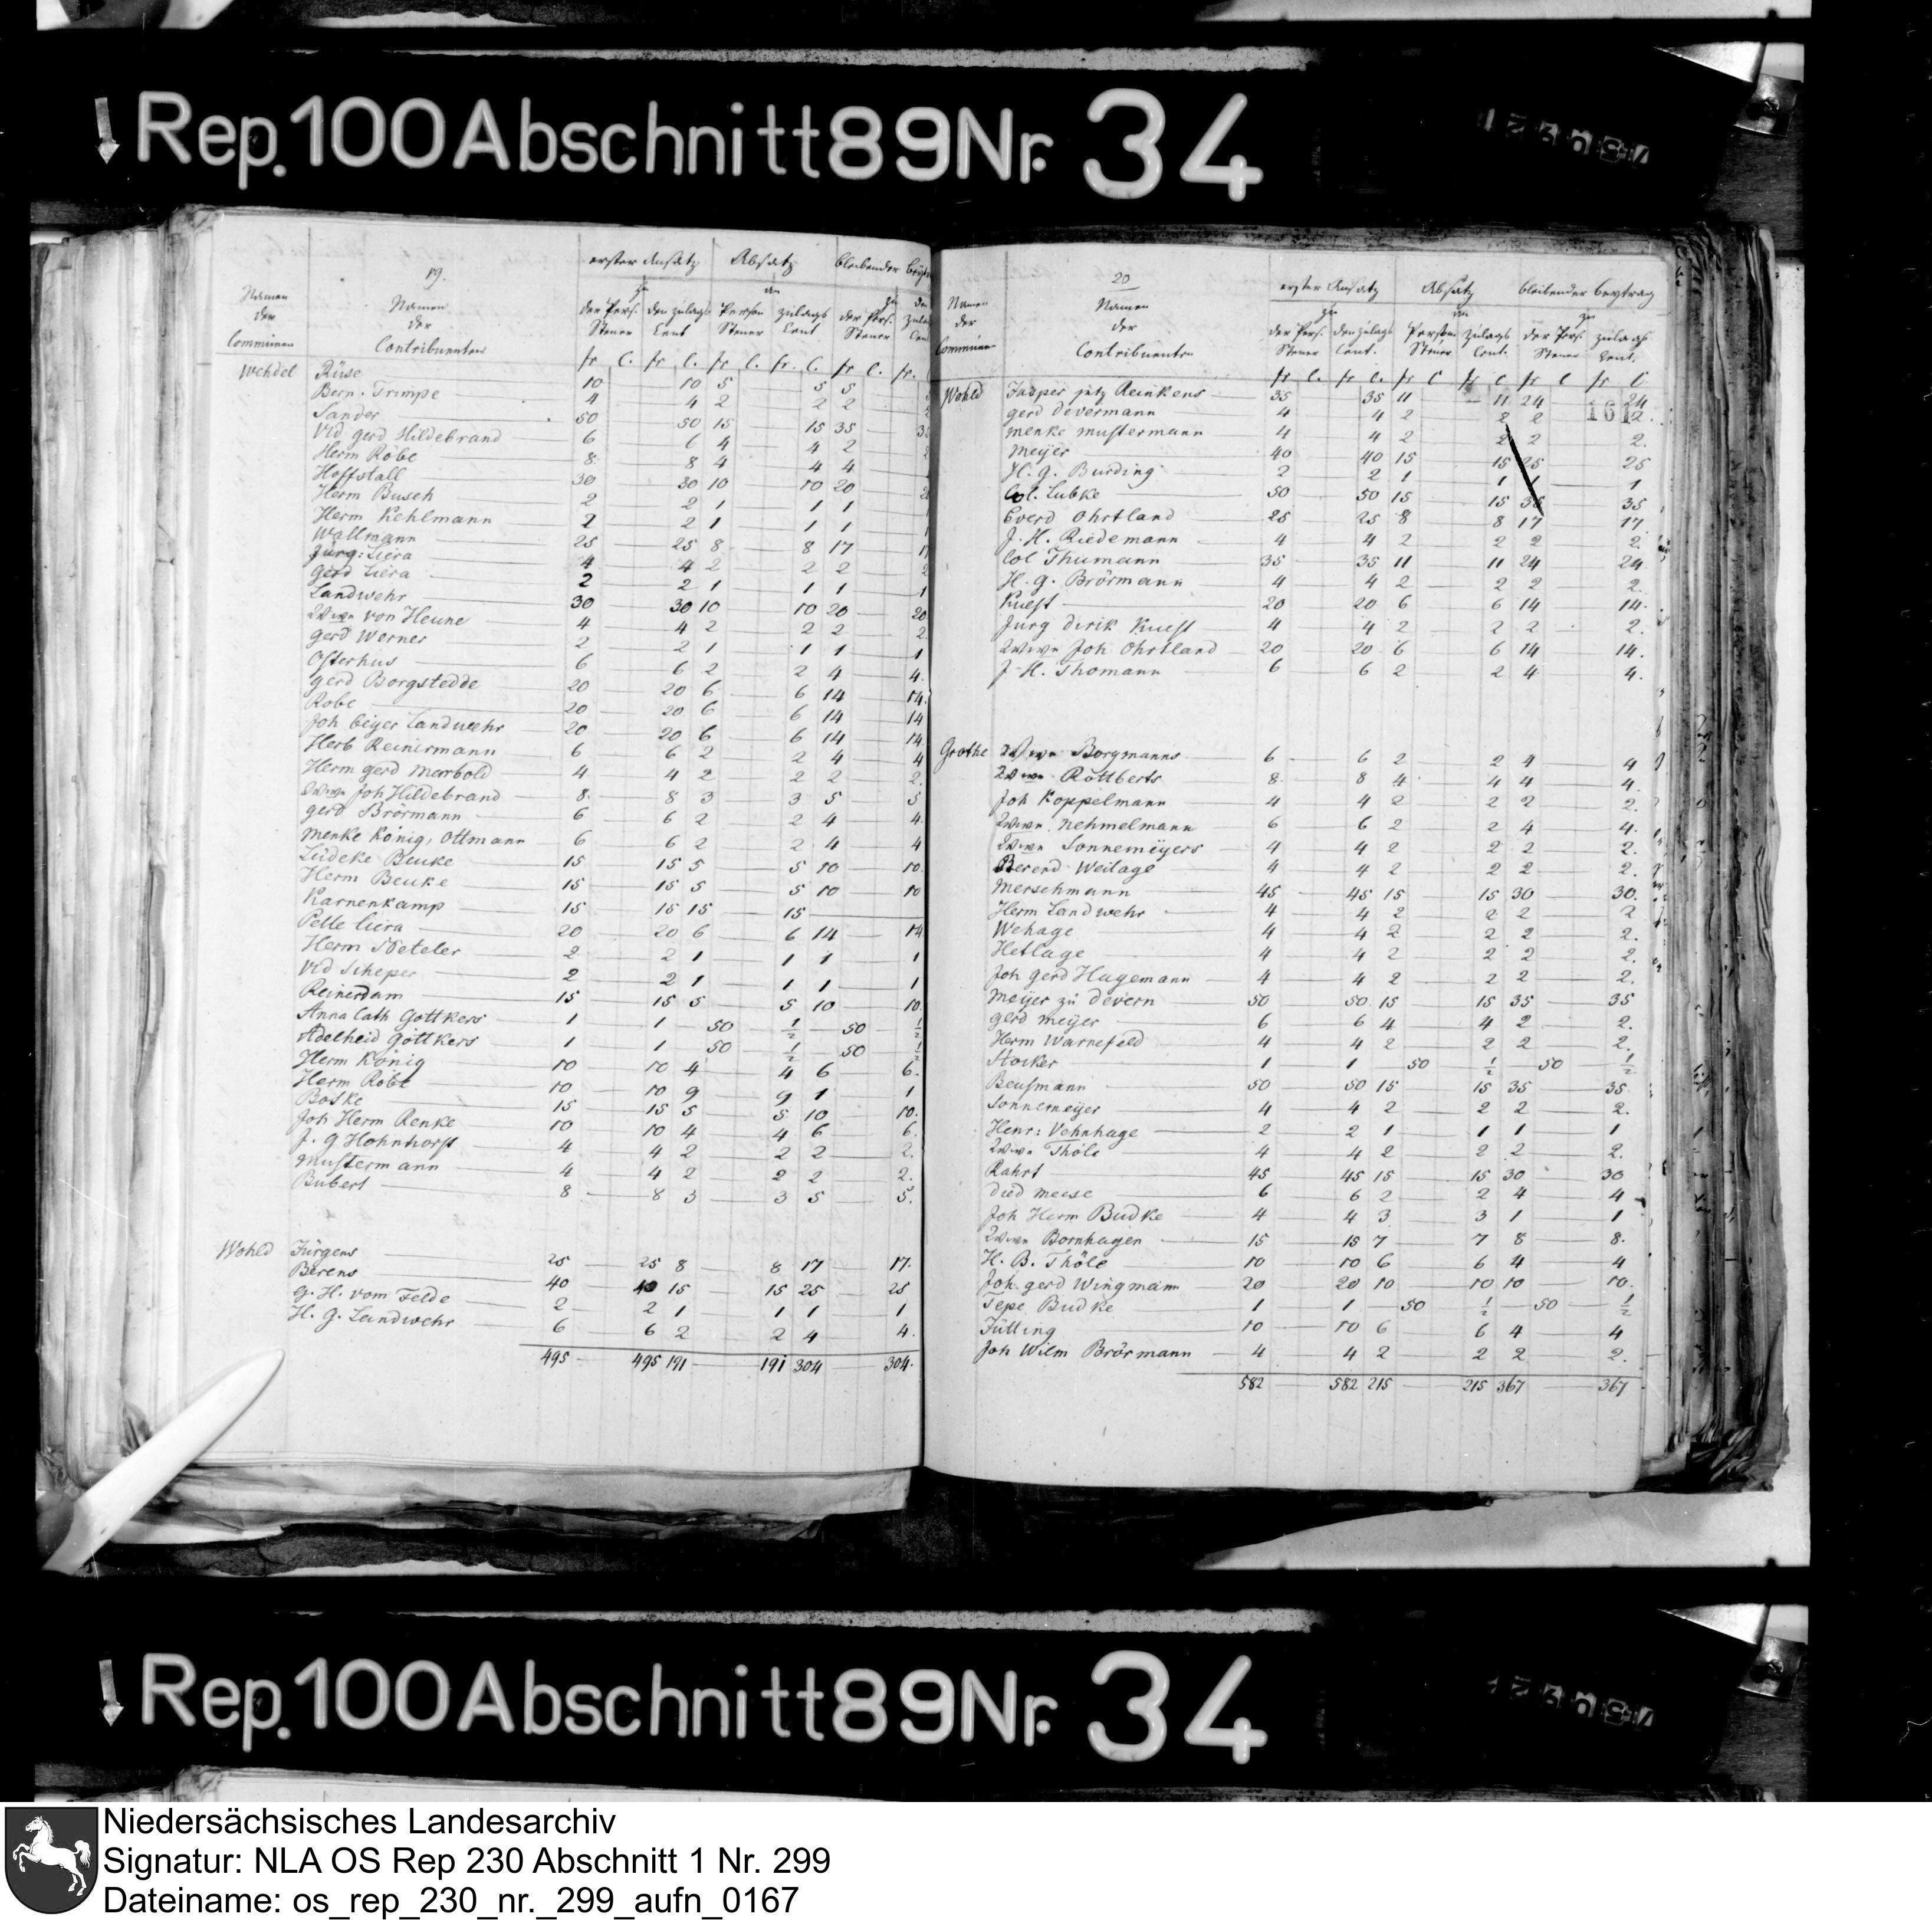 Rep. 100 Abschnitt 89 Nr. 34
19.
erster Ansatz Absatz bleibender
Namen der Communen
Namen der Contribuenten
zu der Pers. Steuer den Zulags Cent
an Person Steuer Zulags Cent
zu der Pers. Steuer
fr C. fr C. fr C. fr. C. fr C. fr.
Wehdel Rüse 10 10 5 5 5
Bern. Trimpe 4 4 2 2 2
Sander 50 50 15 15 35
Vid gerd Hildebrand 6 6 4 4 2
Herm Robe 8 8 4 4 4
Hoffstall 30 30 10 10 20
Herm Busch 2 2 1 1 1
Herm Kehlmann 2 2 1 1 1
Wallmann 25 25 8 8 17
Jürg: Liera 4 4 2 2 2
Gerd Liera 2 2 1 1 1 1
Landwehr 30 30 10 10 20 20
Wwn von Heune 4 4 2 2 2 2
Gerd Werner 2 2 1 1 1 1
Osterhus 6 6 2 2 4 4.
gerd Borgstedde 20 20 6 6 14 14.
Robe 20 20 6 6 14 14
Joh beyer Landwehr 20 20 6 6 14 14
Herb Reinermann 6 6 2 2 4 4
Herm gerd Marbold 4 4 2 2 2 2.
Wwn Joh Hildebrand 8 8 3 3 5 5
gerd Brörmann 6 6 2 2 4 4.
Menke König, Ottmann 6 6 2 2 4 4
Lüdeke Beuke 15 15 5 5 10 10.
Herm Beuke 15 15 5 5 10 10
Karnenkamp 15 15 15 15
Pelle Liera 20 20 6 6 14 14
Herm Meteler 2 2 1 1 1 1
Vid Scheper 2 2 1 1 1 1
Reinerdam 15 15 5 5 10 10.
Anna Cath Gottkers 1 1 50 ½ 50 ½
Adelheid Göttkers 1 1 50 ½ 50 ½
Herm König 10 10 4 4 6 6.
Herm Röbe 10 10 9 9 1 1
Boske 15 15 5 5 10 10.
Joh Herm Renke 10 10 4 4 6 6.
J. g Hohnhorst 4 4 2 2 2 2.
Mustermann 4 4 2 2 2 2.
Bubert 8 8 3 3 5 5.
Wohld Jürgens 25 25 8 8 17 17.
Berens 40 40 15 15 25 25
G. H. vom Felde 2 2 1 1 1 1
H. G. Landwehr 6 6 2 2 4 4.
495 495 191 191 304 304.
20
erster Ansatz Absatz bleibender beytrag
Namen der Communen
Namen der Contribuenten
zu der Pers. Steuer den Zulags Cent.
an Person Steuer Zulags Cent.
zu der Pers. Steuer Zulags Cent.
fr C. fr C. fr C fr C fr C fr C
Wohld Jasper jetz Reinkens 35 35 11 11 24 24
gerd Devermann 4 4 2 2 2 2.
161
Menke Mustermann 4 4 2 2 2 2.
Meyer 40 40 15 15 25 25
H. g. Burding 2 2 1 1 1 1
Col. Lubke 50 50 15 15 35 35
Everd Ohrtland 25 25 8 8 17 17
J. H. Riedemann 4 4 2 2 2 2.
Col Thumann 35 35 11 11 24 24
H. g. Brörmann 4 4 2 2 2 2.
Kuest 20 20 6 6 14 14.
Jürg Dirik Kuest 4 4 2 2 2 2.
Wwn Joh Ohrtland 20 20 6 6 14 14.
J. H. Thomann 6 6 2 2 4 4.
Grothe Wwn Borgmanns 6 6 2 2 4 4
Wwn Rottberts 8 8 4 4 4 4.
Joh Koppelmann 4 4 2 2 2 2.
Wwn Nehmelmann 6 6 2 2 4 4.
Wwn Sonnemeyers 4 4 2 2 2 2.
Berend Weilage 4 4 2 2 2 2.
Merschmann 45 45 15 15 30 30.
Herm Landwehr 4 4 2 2 2 2
Wehage 4 4 2 2 2 2.
Hetlage 4 4 2 2 2 2.
Joh Gerd Hagemann 4 4 2 2 2 2.
Meyer zu Devern 50 50 15 15 35 35
gerd meyer 6 6 4 4 2 2.
Herm Warnefeld 4 4 2 2 2 2.
Stocker 1 1 50 ½ 50 ½
Beusmann 50 50 15 15 35 35
Sonnemeyer 4 4 2 2 2 2.
Henr: Vehnhage 2 2 1 1 1 1
Wwn Thöle 4 4 2 2 2 2.
Rahrt 45 45 15 15 30 30
Died Meese 6 6 2 2 4 4
Joh Herm Budke 4 4 3 3 1 1
Wwn Bornhagen 15 15 7 7 8 8.
H. B. Thöle 10 10 6 6 4 4
Joh gerd Wingmann 20 20 10 10 10 10.
Tepe Budke 1 1 50 ½ 50 ½
Jütting 10 10 6 6 4 4
Joh Wilm Brörmann 4 4 2 2 2 2.
582 582 215 215 367 367
Rep. 100 Abschnitt 89 Nr. 34
Niedersächsisches Landesarchiv
Signatur: NLA OS Rep 230 Abschnitt 1 Nr. 299
Dateiname: os_rep_230_nr._299_aufn_0167